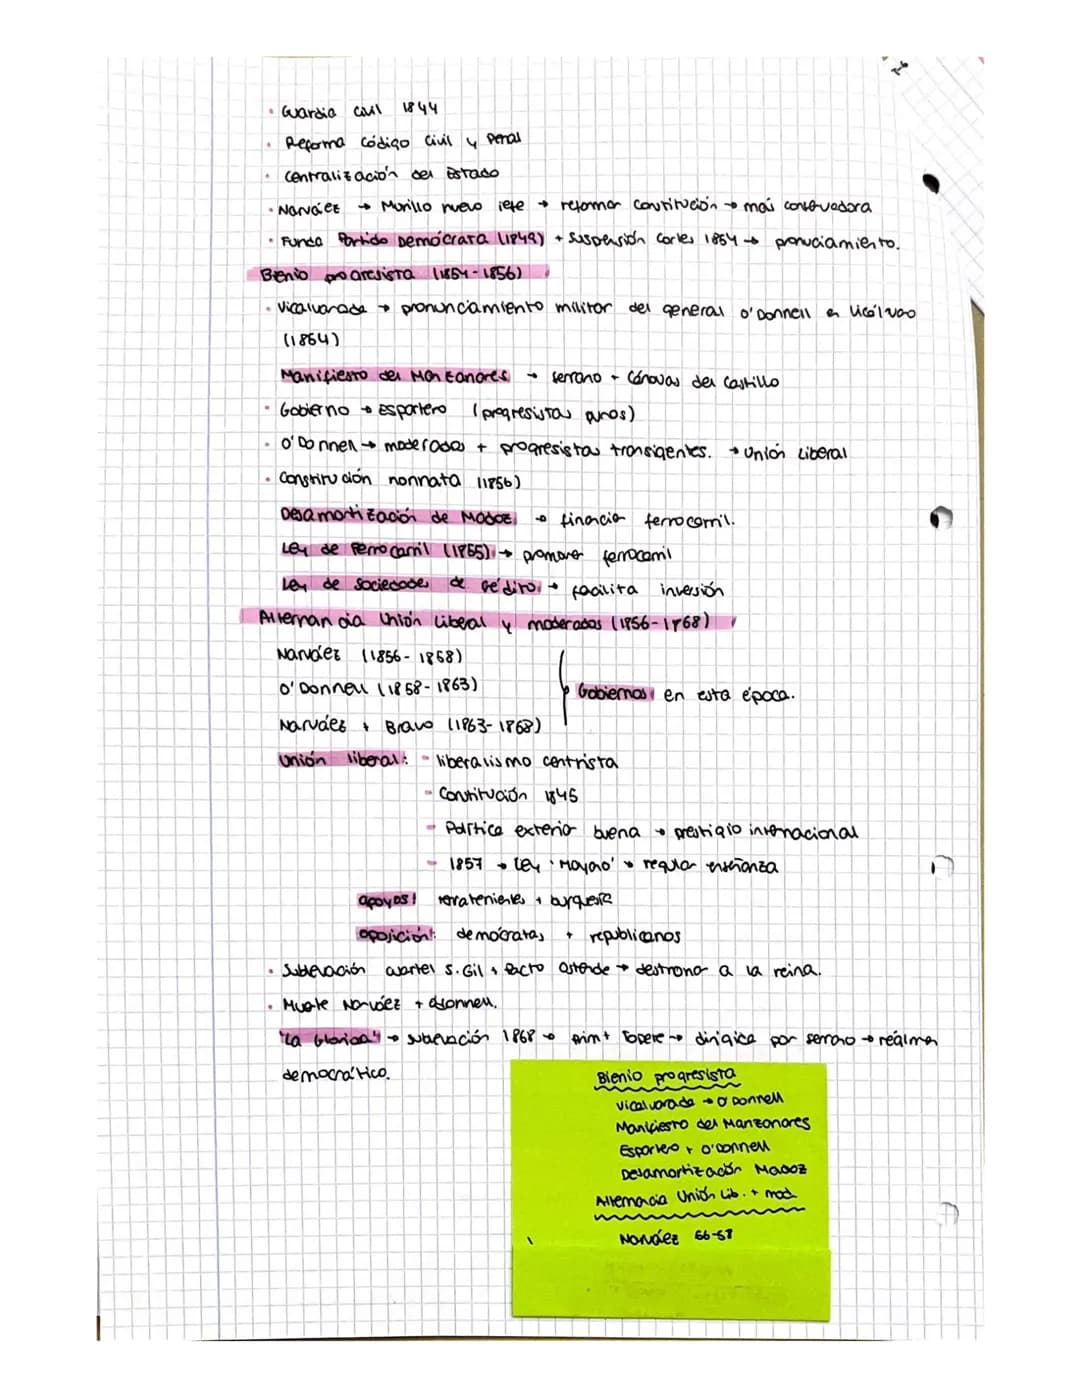 • Guardia civil 1844
• Reforma código civil y penal
• Centralización del Estado
• Narváez → Murillo nuevo jefe → reformar constitución → más conservadora
• Funda Partido Demócrata (1849) + suspensión cortes 1854 → pronuciamiento.
Bienio progresista (1854-1856)
• Vicalvarada → pronunciamiento militar del general O'Donnell en Vicálvaro
(1854)
Manifiesto del Manzanares → Serrano + Cánovas del Castillo
• Gobierno → Espartero (progresistas puros)
• O'Donnell → moderados + progresistas transigentes. → Unión Liberal
• Constitución nonnata (1856)
Desamortización de Madoz → financia ferrocarril.
Ley de Ferrocarril (1855) → promover ferrocarril
Ley de sociedades de crédito → facilita inversión
Alternancia Unión Liberal y moderados (1856-1868)
Narváez (1856-1858)
O'Donnell (1858-1863)
Gobiernos en esta época.
Narváez + Bravo (1863-1868)
Unión liberal: - liberalismo centrista
- Constitución 1845
- Política exterior buena → prestigio internacional
- 1857 → Ley 'Moyano' → regular enseñanza
apoyos: terratenientes + burguesía
oposición: demócratas + republicanos
• Sublevación cuartel S. Gil + Pacto Ostende → destronar a la reina.
• Muerte Narváez + O'Donnell.
"La Gloriosa" → sublevación 1868 → Prim + Topete → dirigida por Serrano → régimen
democrático.
Bienio progresista
Vicalvarada → O'Donnell
Manifiesto del Manzanares
Espartero + O'Donnell
Desamortización Madoz
Alternacia Unión Lib. + mod
Narváez 56-58